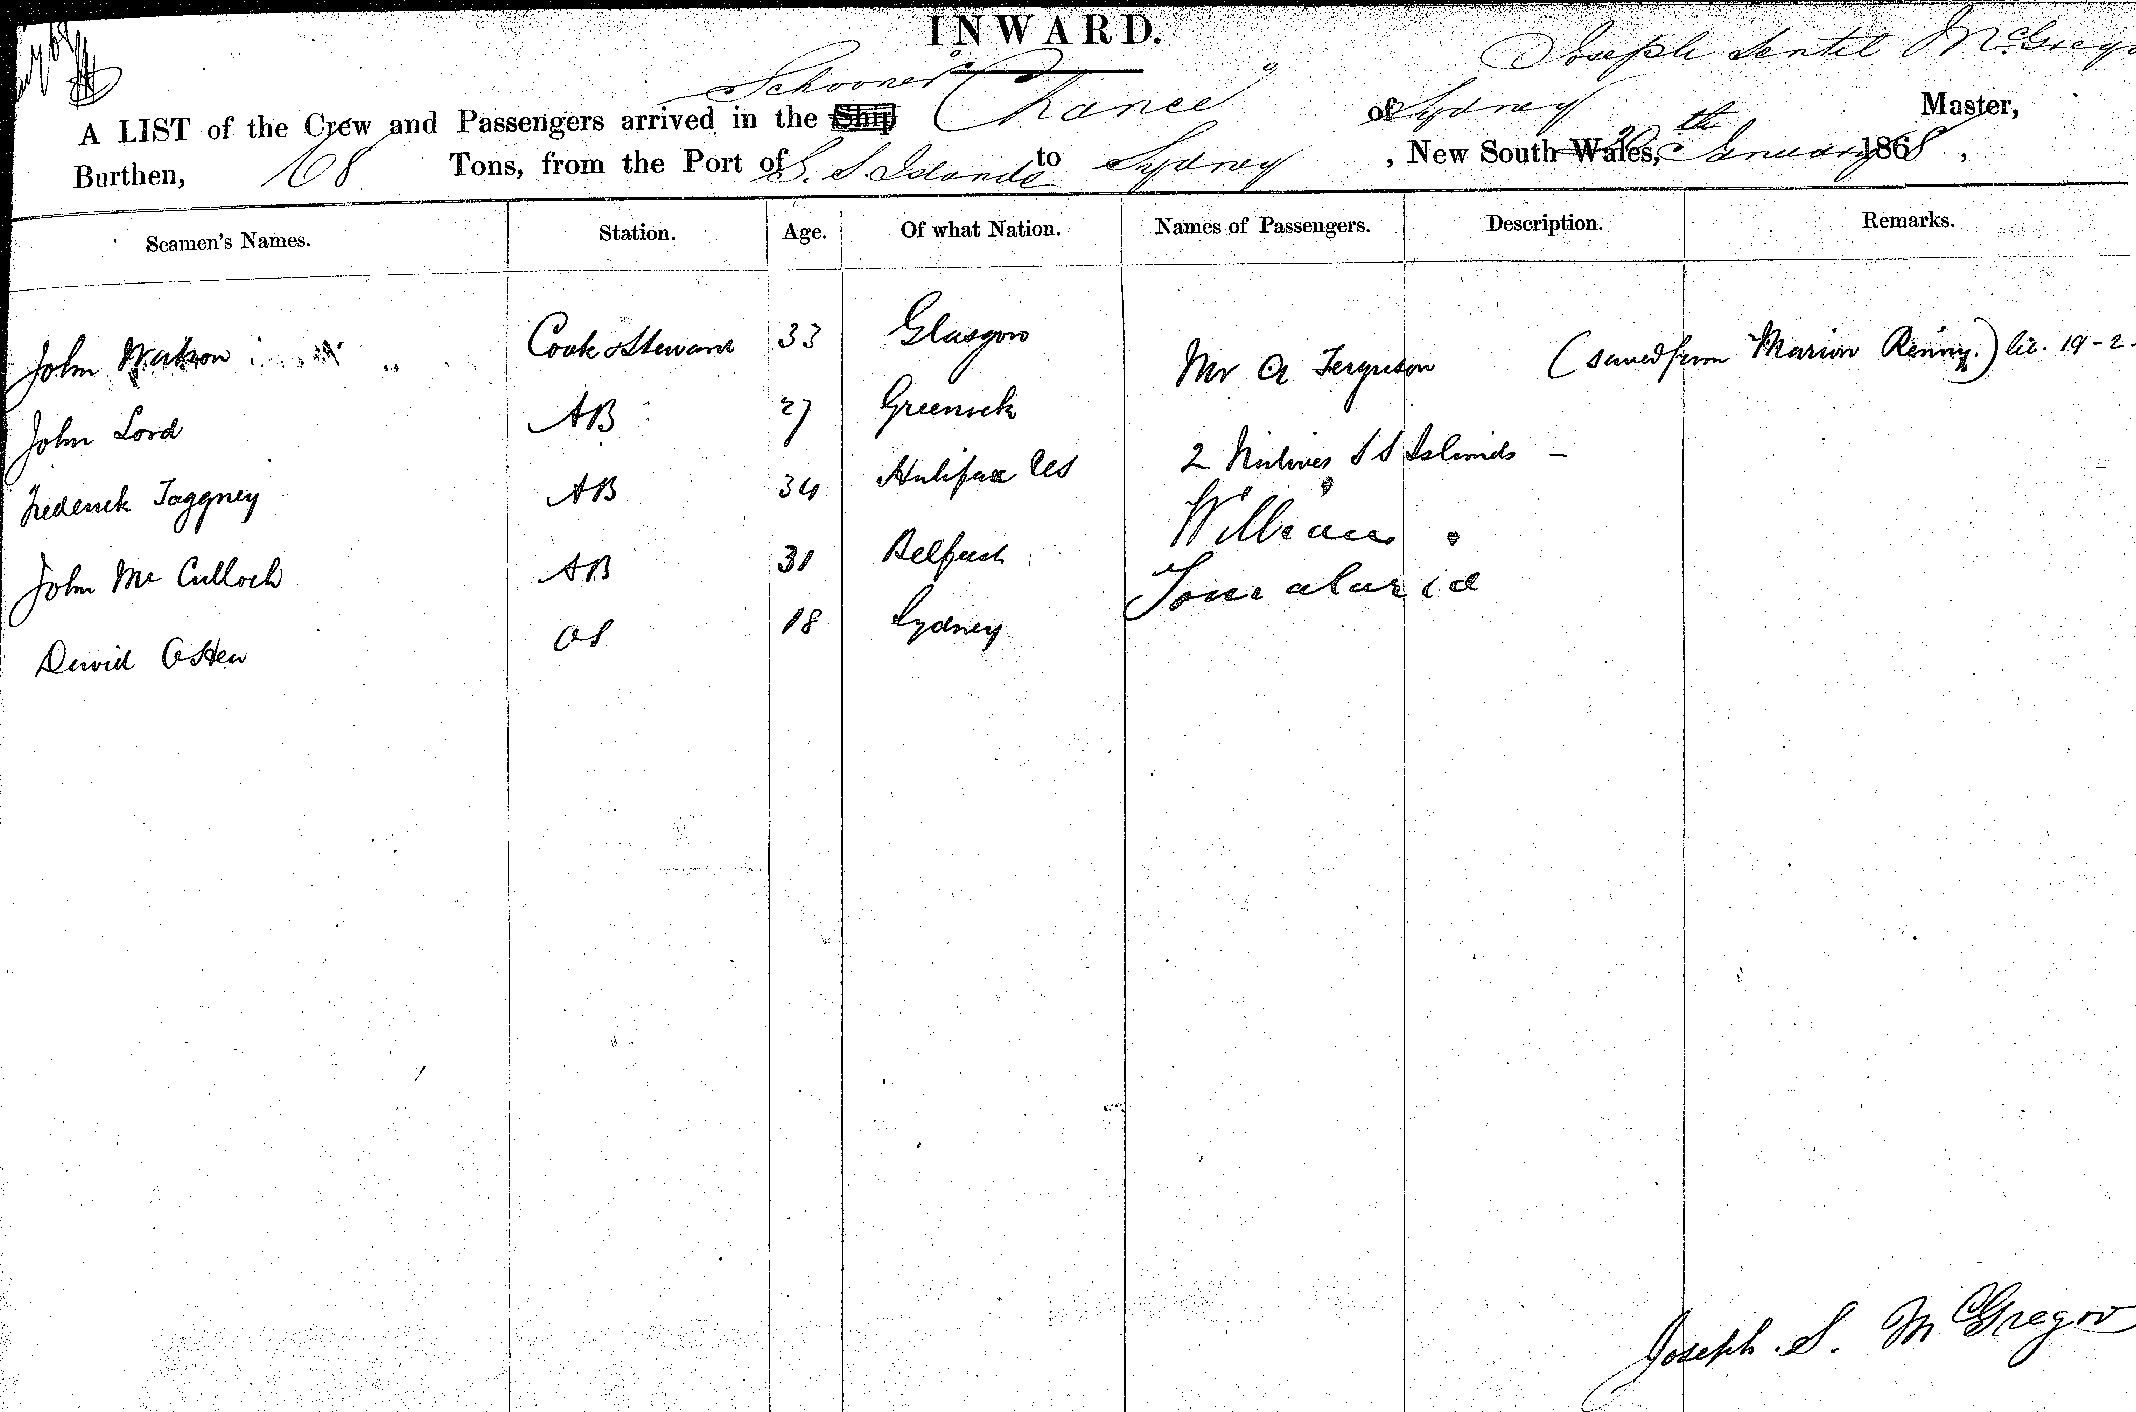 INWARD.
Joseph Sentil McGrego
Schooner "Chance"
A LIST of the Crew and Passengers arrived in the Ship of Sydney Master,
Burthen, 68 Tons, from the Port of S. S Islands to Sydney , New South Wales, 20th January 1868 ,
Seamen's Names. Station. Age. Of what Nation. Names of Passengers. Description. Remarks.
John Watson Cook & Steward 33 Glasgow Mr A Ferguson (saved from Marion Renny.) lic. 19-2.
John Lord AB 27 Greenock
Frederick Taggney AB 34 Halifax US 2 Natives S S Islands -
William
John Mc Culloch AB 31 Belfast
David OShea OS 18 Sydney
Joseph. S. McGregor